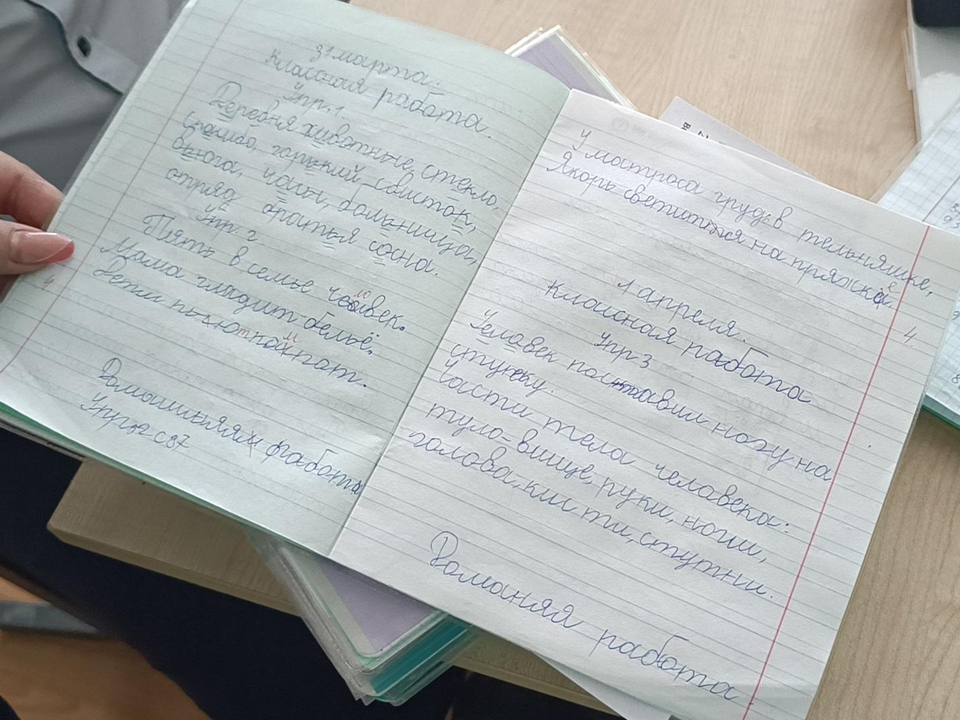 31 марта.
Классная работа.
Упр. 1
Деревня животные, стекло,
спасибо, горький свисток,
вьюга, чайн, больница,
отряд платья сосна.
Упр. 2
Пять в семье человек.
Мама гладит бельё,
дети пьют
Домашняя работа
Упр 12 с 87
У матроса грудь в тельняшке,
Якорь светится на пряжке.
1 апреля.
Классная работа
Упр 3
Человек поставил ногу на
ступку.
Части тела человека:
туло-вище, руки, ноги,
голова, кис ти, ступни.
Домашняя работа
4
4.